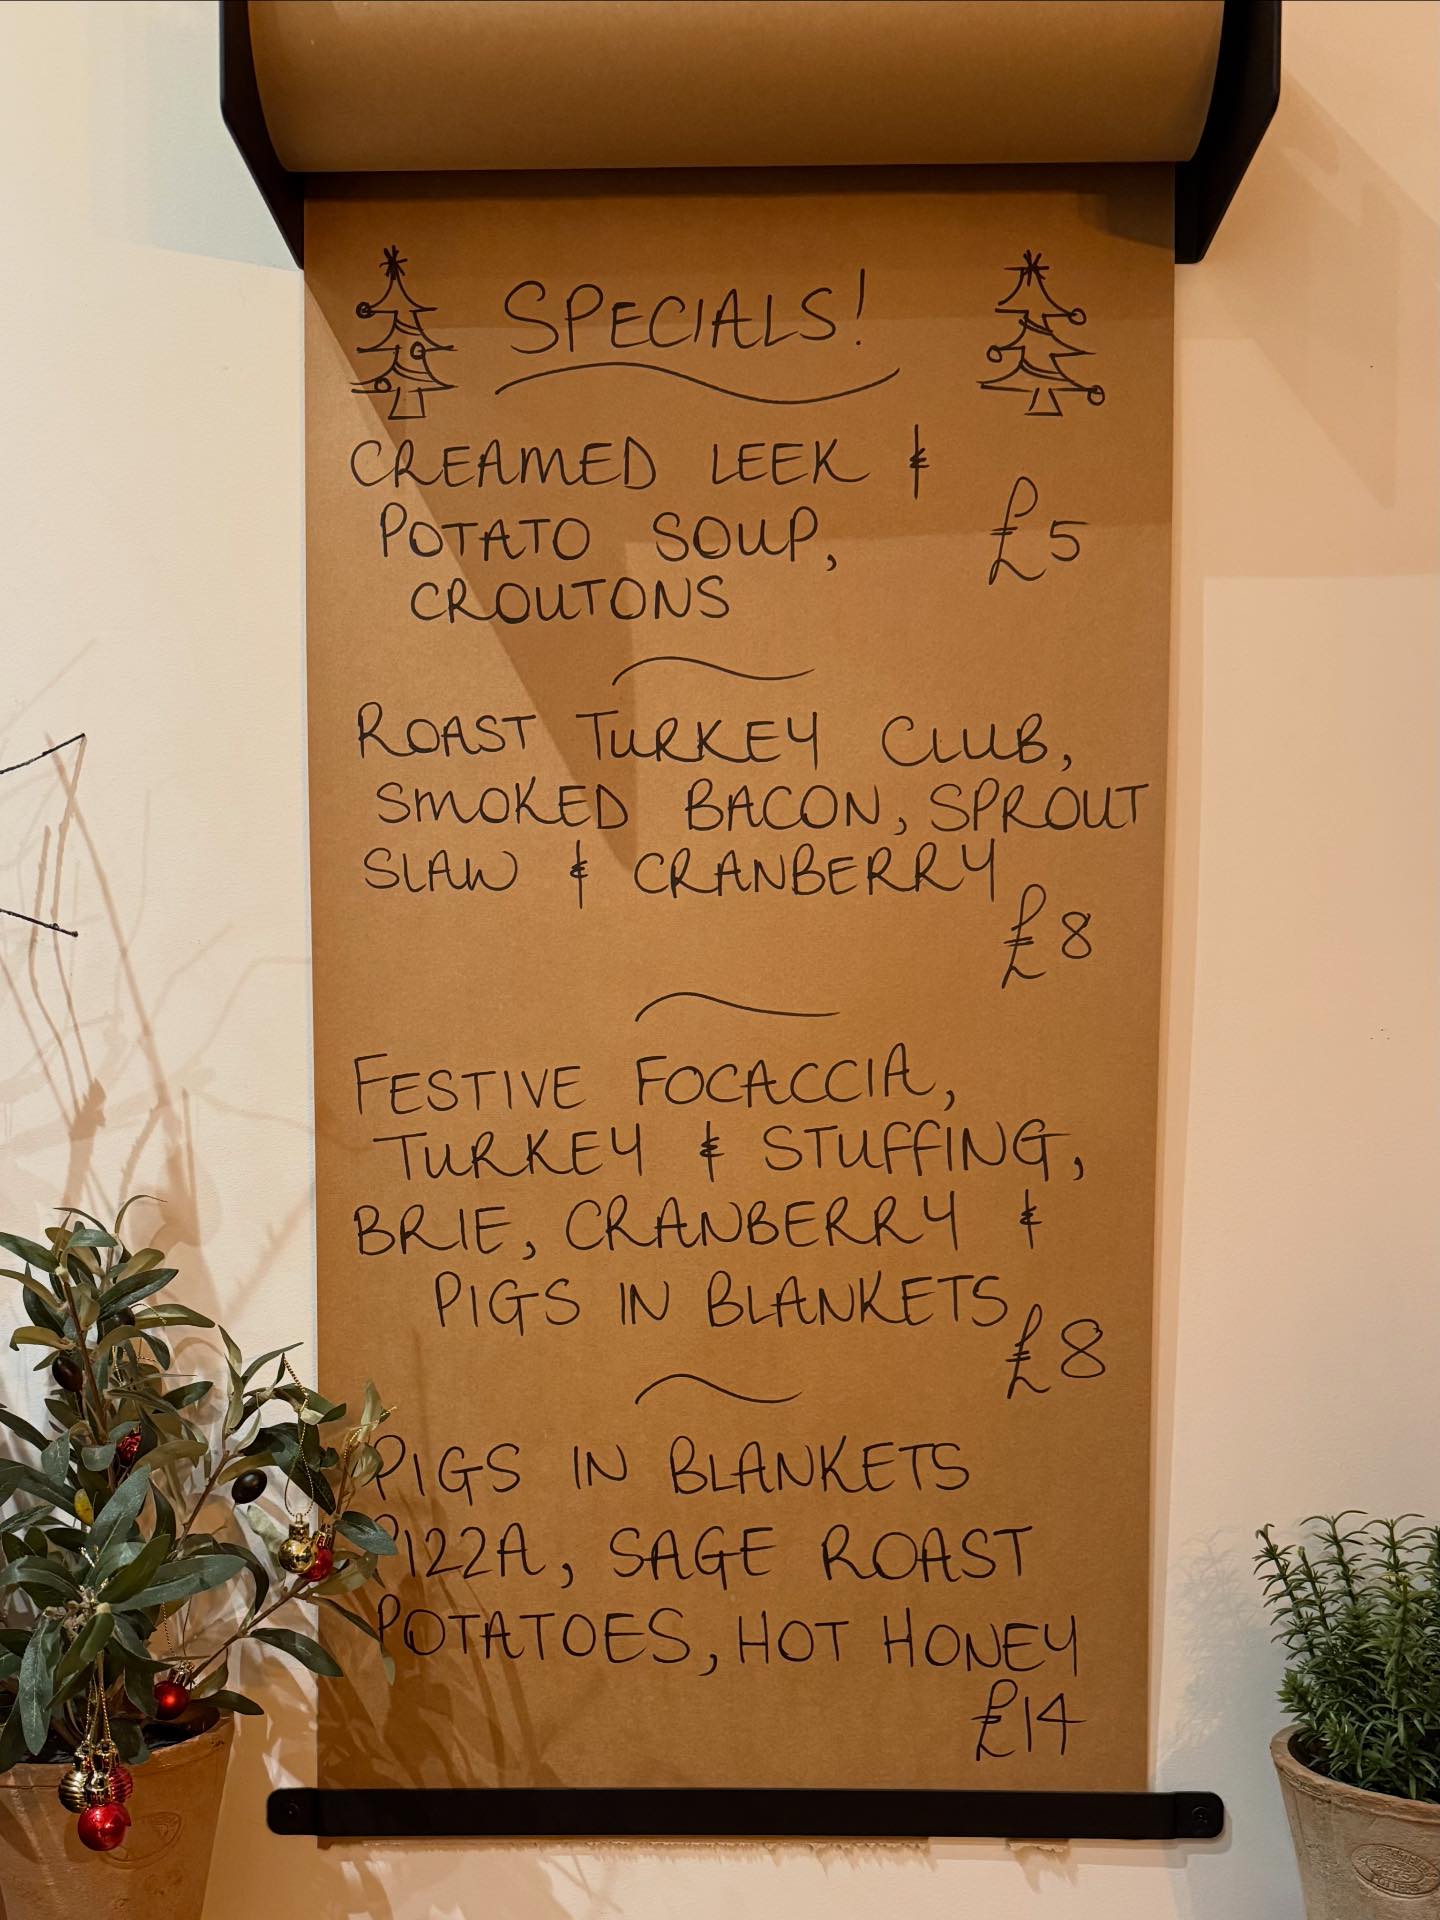 SPECIALS!
CREAMED LEEK &
POTATO SOUP,
CROUTONS
£5
ROAST TURKEY CLUB,
SMOKED BACON, SPROUT
SLAW & CRANBERRY
£8
FESTIVE FOCACCIA,
TURKEY & STUFFING,
BRIE, CRANBERRY &
PIGS IN BLANKETS
£8
PIGS IN BLANKETS
PIZZA, SAGE ROAST
POTATOES, HOT HONEY
£14